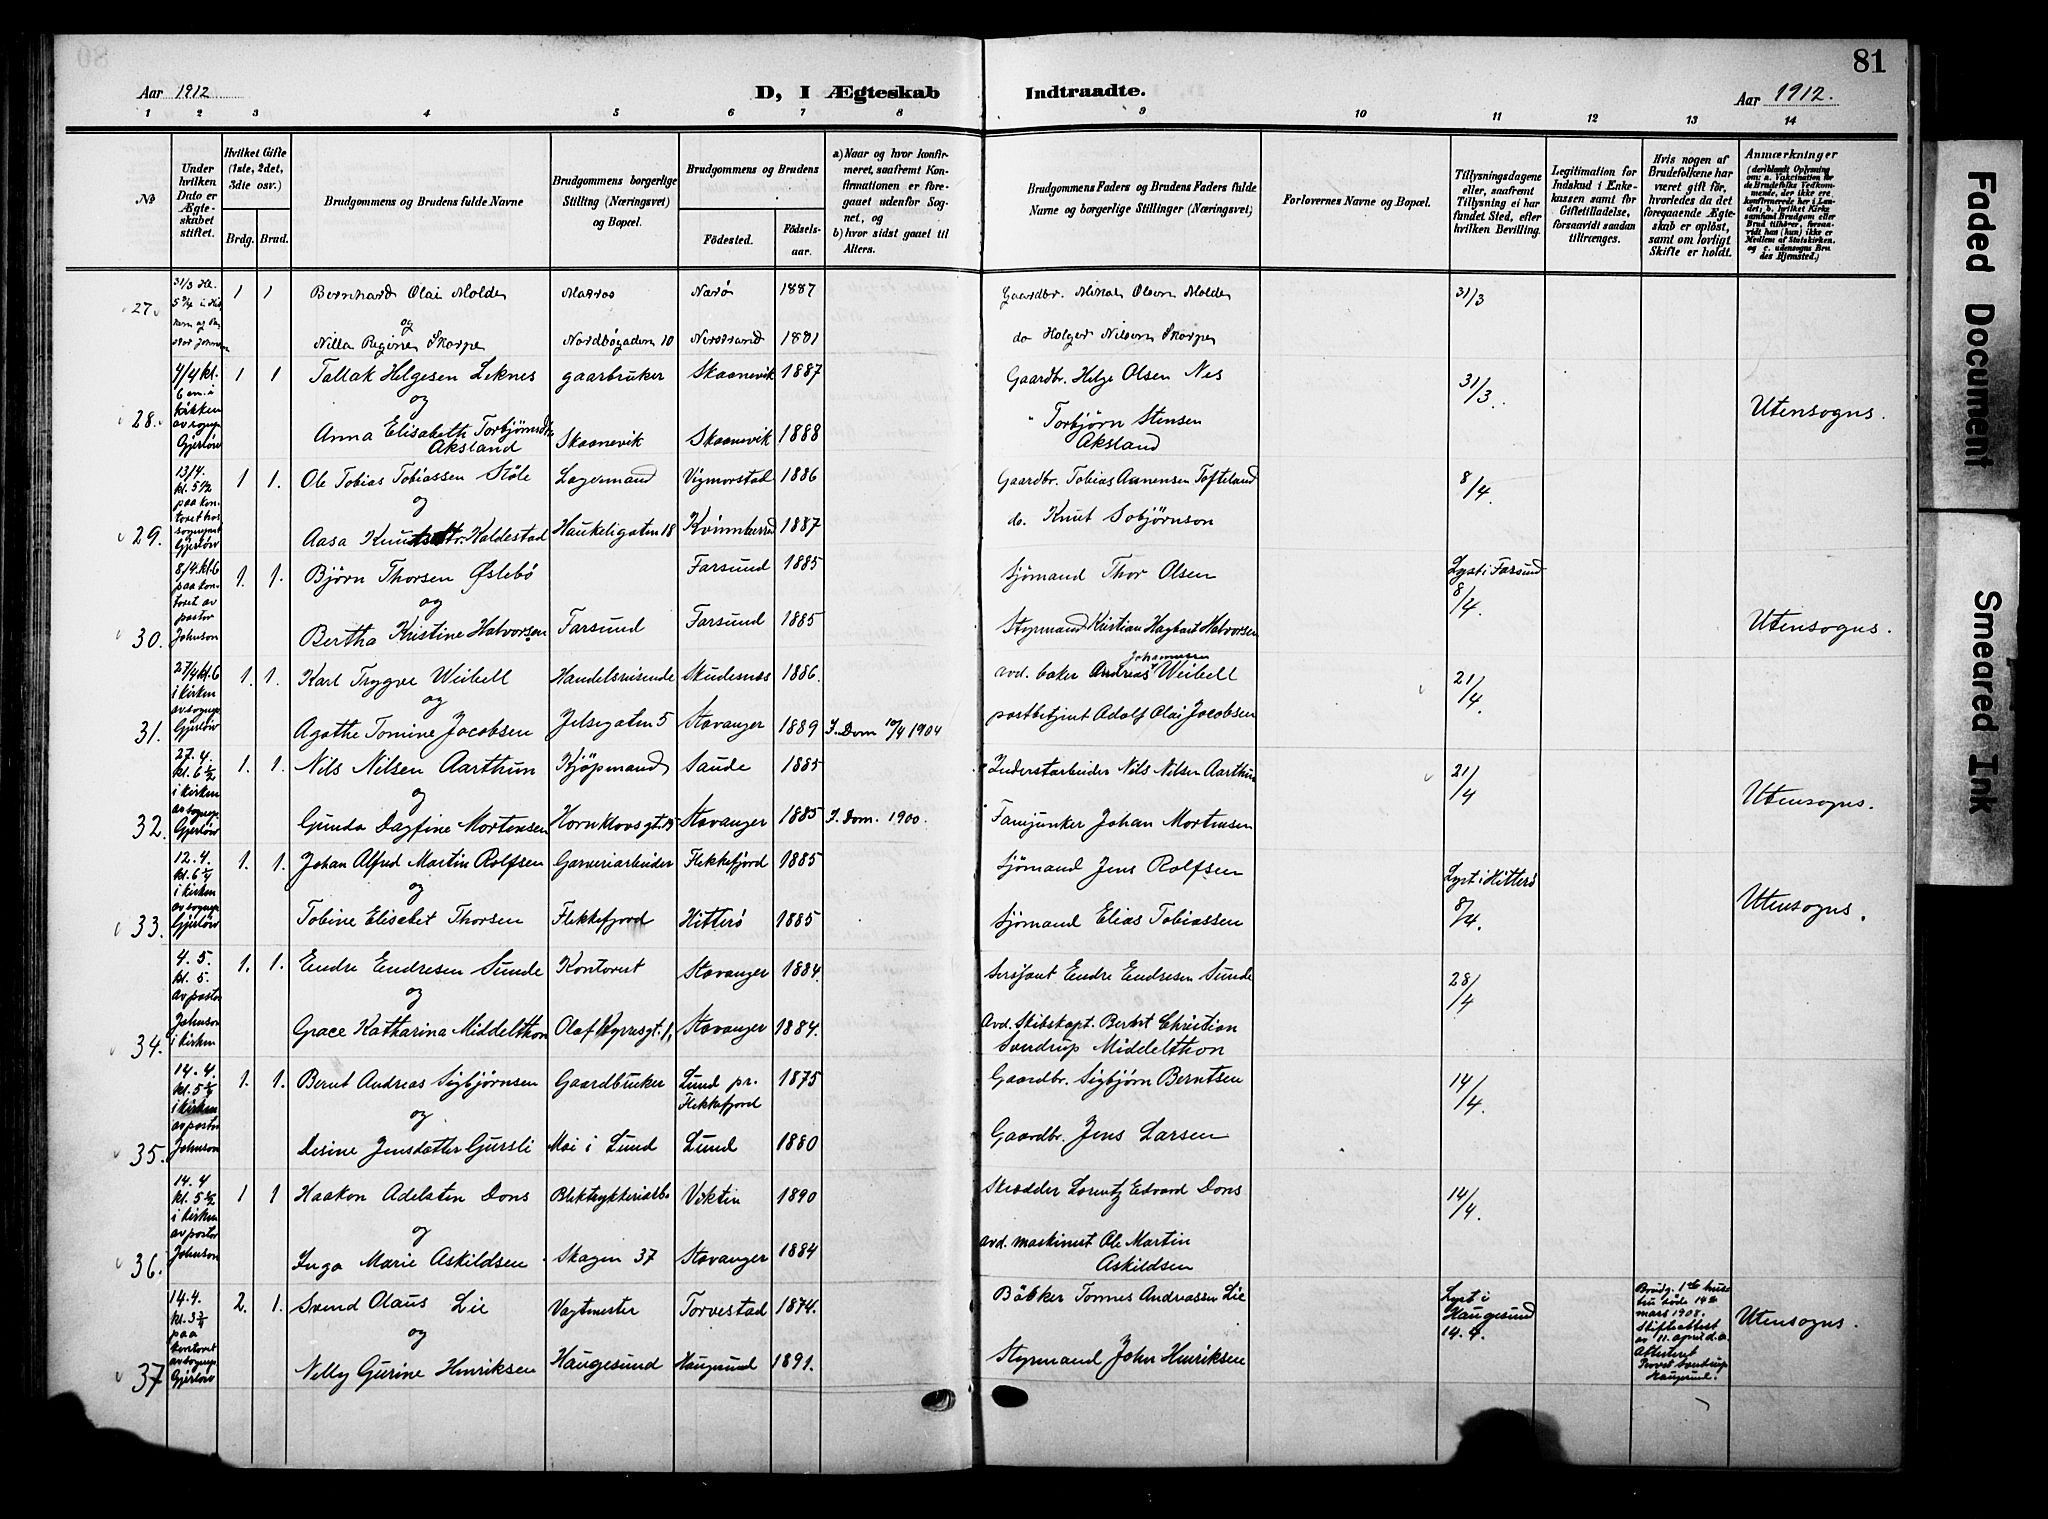 81
Aar 1912
D, I Ægteskab
Indtraadte.
Aar 1912.
1 2 3 4 5 6 7 8 9 10 11 12 13 14
No
Under hvilken Dato er Ægteskabet stiftet.
Hvilket Gifte (1ste, 2det, 3die osv.)
Brdg. Brud.
Brudgommens og Brudens fulde Navne
Brudgommens borgerlige Stilling (Næringsvei) og Bopæl.
Brudgommens og Brudens
Födested.
Födselsaar.
a) Naar og hvor konfirmeret, saafremt Konfirmationen er foregaaet udenfor Sognet, og
b) hvor sidst gaaet til Alters.
Brudgommens Faders og Brudens Faders fulde Navne og borgerlige Stillinger (Næringsvei)
Forlovernes Navne og Bopæl.
Tillysningsdagene eller, saafremt Tillysning ei har fundet Sted, efter hvilken Bevilling.
Legitimation for Indskud i Enkekassen samt for Giftetilladelse, forsaavidt saadan tiltrænges.
Hvis nogen af Brudefolkene har været gift før, hvorledes da det foregaaende Ægteskab er opløst, samt om lovligt Skifte er holdt.
Anmærkninger (deriblandt Oplysning om: a. Vakcination for de Brudefolks Vedkommende, der ikke ere konfirmerede her i Landet; b. hvilket Kirkesamfund Brudgom eller Brud tilhører, forsaavidt han (hun) ikke er Medlem af Statskirken. og c. udensogns Brudes Hjemsted.)
27. 1 1 Bernhard Olai Molde Matros Narö 1887 Gaardbr. Mikal Olsen Molde 31/3
og
Nilla Regine Skorpe Nordbögaden 10 Nerstrand 1881 do Holger Nilsen Skorpe
28. 4/4 kl. 6 em. i kirken av sognep. Gjerløw 1 1 Tallak Helgesen Leknes gaarbruker Skaanevik 1887 Gaardbr. Helge Olsen Nes 31/3. Utensogns.
og
Anna Elisabeth Torbjørnsdtr. Aksland Skaanevik Skaanevik 1888 " Torbjörn Stensen Aksland
29. 13/4. kl. 5 1/2 paa kontoret hos sognepr. Gjerløw 1 1. Ole Tobias Tobiassen Støle Lagermand Vigmorstad 1886 Gaardbr. Tobias Aanensen Tofteland 8/4.
og
Aasa Knutsdtr. Haldestad Haukeligaten 18 Kvinnherred 1887 do. Knut Sobjørnson
30. 8/4. kl. 6 paa kontoret av pastor Johnson 1. 1. Björn Thorsen Øslebö Farsund 1885 Sjömand Thor Olsen Lyst i Farsund 8/4. Utensogns.
og
Bertha Kristine Halvorsen Farsund Farsund 1885 Styrmand Kristian Hagbart Halvorsen
31. 27/4 kl. 6 i kirken av sognep. Gjerløw 1. 1. Karl Trygve Weibell Handelsreisende Skudesnes 1886. avd. baker Andreas Johannessen Weibell 21/4.
og
Agathe Tomine Jacobsen Jelsegaten 5 Stavanger 1889 I. Dom 10/4 1904 postbetjent Adolf Olai Jacobsen
32. 27. 4. kl. 6 1/2 i kirken av sognep. Gjerløw 1. 1. Nils Nilsen Aarthun Kjöpmand Saude 1885 Inderstarbeider Nils Nilsen Aarthun 21/4 Utensogns.
og
Gunda Dagfine Mortensen Hornklovsgt. 15 Stavanger 1885 I. Dom. 1900. Fanejunker Johan Mortensen
33. 12. 4. kl. 6 1/4 i kirken av sognep. Gjerløw 1. 1. Johan Alfred Martin Rolfsen Garveriarbeider Flekkefjord 1885 Sjömand Jens Rolfsen Lyst i Hitterö 8/4. Utensogns.
og
Tobine Elisebet Thorsen Flekkefjord Hitterö 1885 Sjömand Elias Tobiassen
34. 4. 5. kl. 5. av pastor Johnson i kirken 1. 1. Endre Endresen Sunde Kontorist Stavanger 1884. Sersjant Endre Endresen Sunde 28/4
og
Grace Katharina Middelthon Olaf Kyrresgt. 1, Stavanger 1884. Avd. Skibskapt. Berent Christian Sverdrup Middelthon
35. 14. 4. kl. 5 1/4 i kirken av pastor Johnson 1. 1. Bernt Andreas Sigbjørnsen Gaardbruker Lund pr. Flekkefjord 1875 Gaardbr. Sigbjørn Berntsen 14/4.
og
Desine Jensdatter Gursli Moi i Lund Lund 1880 Gaardbr. Jens Larsen
36. 14. 4 kl. 5 1/2 i kirken av pastor Johnson 1 1 Haakon Adelsten Dons Blektrykkeriarb. Viktin 1890 Skrædder Lorentz Edvard Dons 14/4.
og
Inga Marie Askildsen Skagen 37 Stavanger 1884 avd. maskinist Ole Martin Askildsen
37 14. 4. kl. 3 1/4 paa kontoret av sognep. Gjerløw 2. 1. Svend Olaus Lie Vagtmester Torvestad 1874. Bökker Tønnes Andreassen Lie Lyst i Haugesund 14. 4. Brudg. 1ste hustru døde 14de mars 1908. Skifteattest av 11. april d.a. Utensogns.
og
Nelly Gurine Henriksen Haugesund Haugesund 1891. Styrmand John Henriksen
Faded Document
Smeared Ink